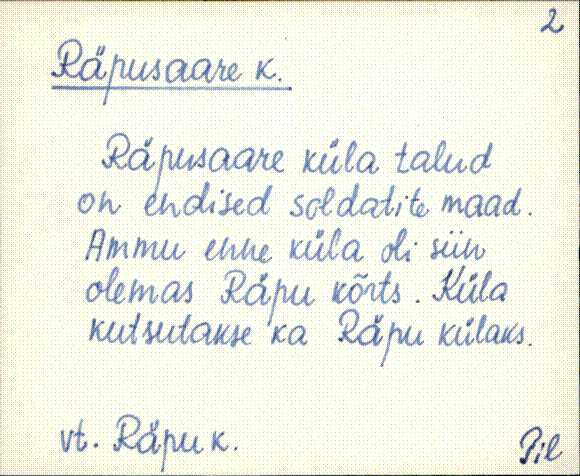 2
Räpusaare k.
Räpusaare küla talud
on endised soldatite maad.
Ammu enne küla oli siin
olemas Räpu kõrts. Küla
kutsutakse ka Räpu külaks.
vt. Räpu k.
Pil